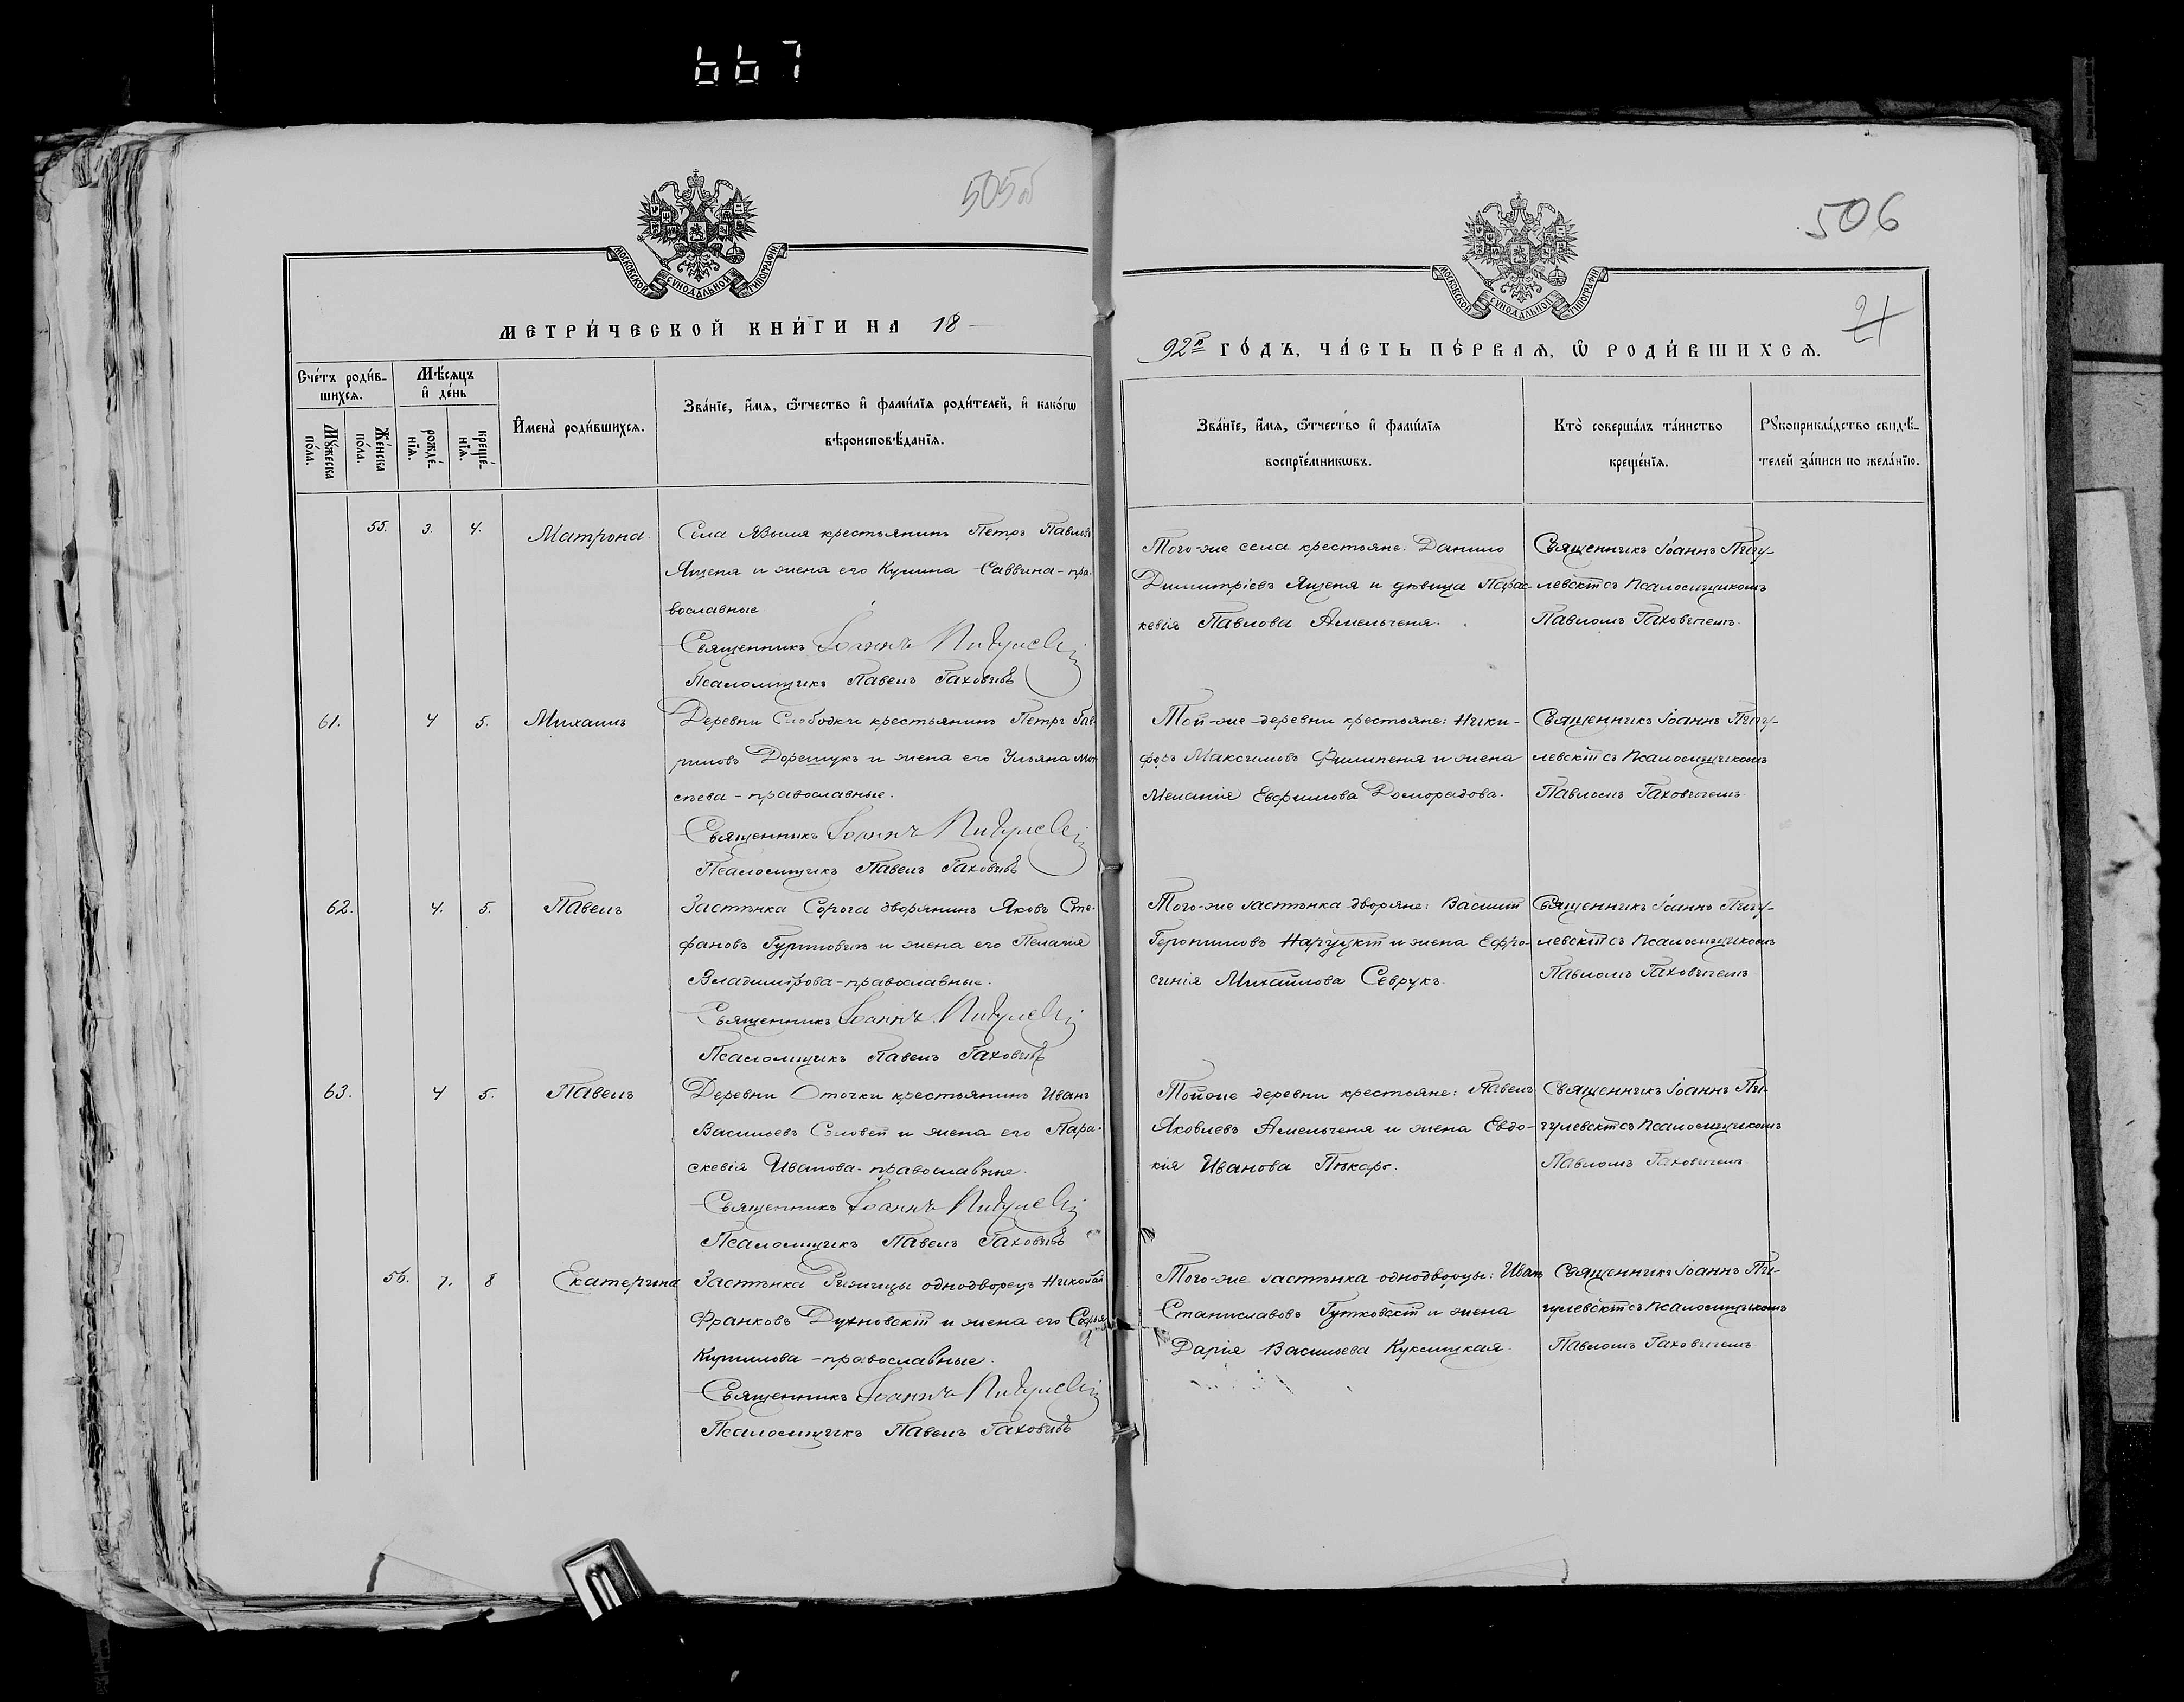 667
505об
МОСКОВСКОЙ СУНОДАЛЬНОЙ ТИПОГРАФІИ
МЕТРИ́ЧЕСКОЙ КНИ́ГИ НА 18
Сче́тъ роди́в-
шихся.
Мѣ́сяцъ
и҆ де́нь
Мꙋ́жеска по́ла.
Же́нска по́ла.
рожде́-нїѧ.
креще́-нїѧ.
И҆мена̀ роди́вшихсѧ.
Зва́нїе, и҆́мѧ, ѻ҆́тчество и҆ фами́лїѧ роди́телей, и҆ како́гѡ
вѣроисповѣ́данїѧ.
55. 3. 4. Матрона
Села Языля крестьянинъ Петръ Павловъ
Ященя и жена его Кулина Саввина - пра-
вославные
Священникъ Іоаннъ Пигулевскій
Псаломщикъ Павелъ Гаховичъ
61. 4 5. Михаилъ
Деревни Слободки крестьянинъ Петръ Гав-
риловъ Дорешукъ и жена его Ульяна Мои
сеева - православные.
Священникъ Іоаннъ Пигулевскій
Псаломщикъ Павелъ Гаховичъ
62. 4. 5. Павелъ
Застѣнка Сорога дворянинъ Яковъ Сте-
фановъ Гуриновичъ и жена его Пелагія
Владимірова - православные.
Священникъ Іоаннъ Пигулевскій
Псаломщикъ Павелъ Гаховичъ
63. 4 5. Павелъ
Деревни Оточки крестьянинъ Иванъ
Васильевъ Соловей и жена его Пара-
скевія Иванова - православные.
Священникъ Іоаннъ Пигулевскій
Псаломщикъ Павелъ Гаховичъ
56. 7. 8 Екатерина
Застѣнка однодворецъ Николай
Франковъ Духновскій и жена его Софья
Кирилова - православные.
Священникъ Іоаннъ Пигулевскій
Псаломщикъ Павелъ Гаховичъ
506
21
МОСКОВСКОЙ СУНОДАЛЬНОЙ ТИПОГРАФІИ
92й ГО́ДЪ, ЧА́СТЬ ПЕ́РВАѦ, Ѽ РОДИ́ВШИХСѦ.
Зва́нїе, и҆́мѧ, ѻ҆́тчество и҆ фами́лїѧ
воспрїе́мникѡвъ.
Кто̀ соверша́лъ та́инство
креще́нїѧ.
Рꙋкоприкла́дство свидѣ́-
телей за́писи по жела́нїю.
Того-же села крестьяне: Данило
Димитріевъ Ященя и дѣвица Парас-
кевія Павлова Амельченя.
Священникъ Іоаннъ Пигу-
левскій съ псаломщикомъ
Павломъ Гаховичемъ.
Той-же деревни крестьяне: Ники-
форъ Максимовъ Филипеня и жена
Меланія Евфимова Доморадова.
Священникъ Іоаннъ Пигу-
левскій съ псаломщикомъ
Павломъ Гаховичемъ
Того-же застѣнка дворяне: Василій
Геронимовъ Наруцкій и жена Ефро-
синія Михайлова Севрукъ.
Священникъ Іоаннъ Пигу-
левскій съ псаломщикомъ
Павломъ Гаховичемъ
Той же деревни крестьяне: Павелъ
Яковлевъ Амельченя и жена Евдо-
кія Иванова Пекарь.
Священникъ Іоаннъ Пи-
гулевскій съ псаломщикомъ
Павломъ Гаховичемъ
Того-же застѣнка однодворцы: Иванъ
Станиславовъ Гутковскій и жена
Дарія Васильева Куксицкая.
Священникъ Іоаннъ Пи-
гулевскій съ псаломщикомъ
Павломъ Гаховичемъ